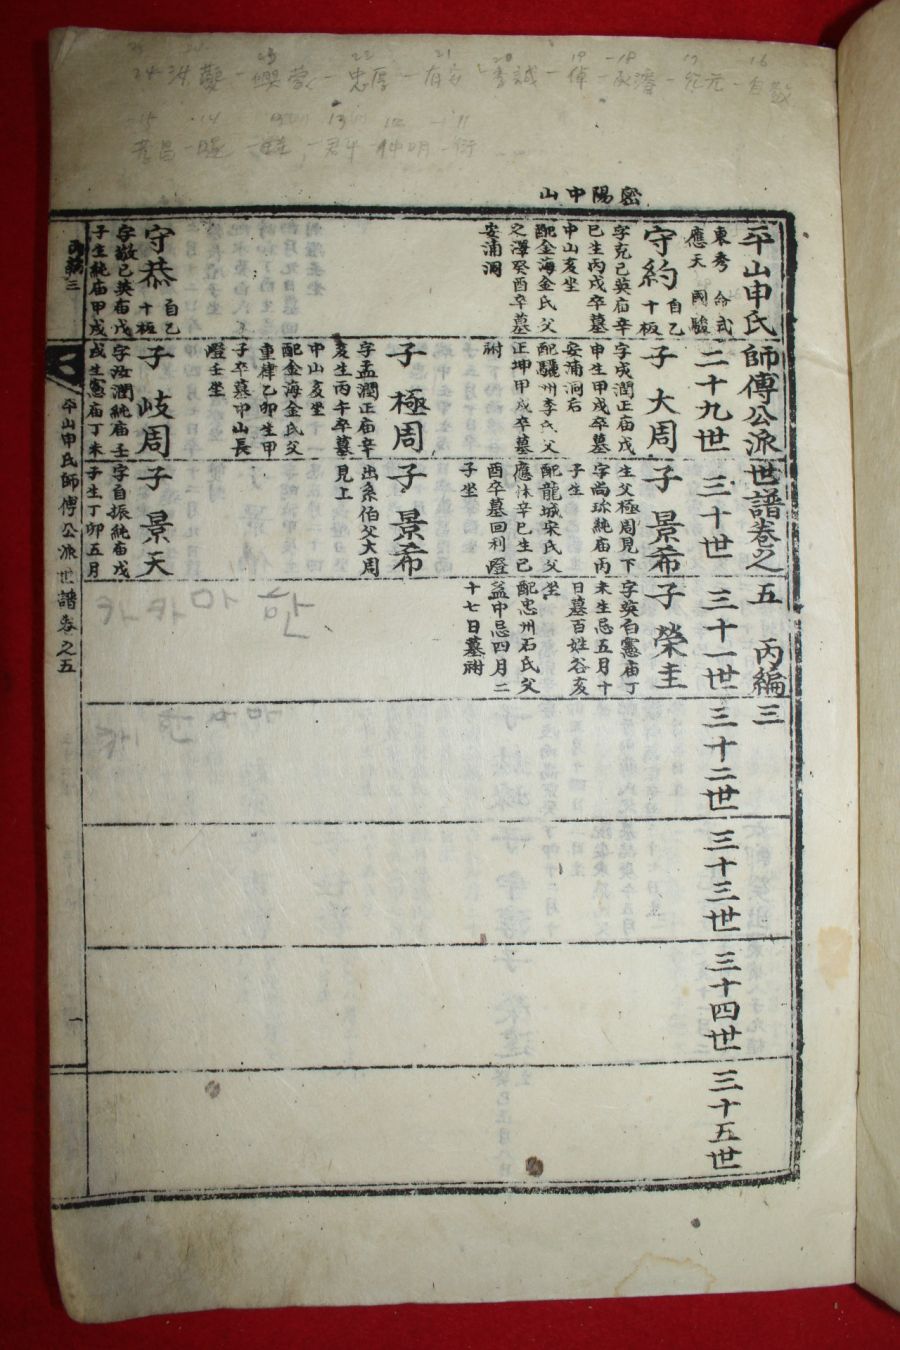 密陽中山
平山申氏師傅公派世譜卷之五 丙編三
二十九世
三十世
三十一世
三十二世
三十三世
三十四世
三十五世
東秀 命武
應天 國駿
守約 自乙十板
字克己英庙辛
巳生丙戌卒墓
中山亥坐
配金海金氏父
之澤癸酉卒墓
安浦洞
子 大周
字成潤正庙戊
申生甲戌卒墓
安浦洞右
配驪州李氏父
正坤甲戌卒墓
祔
子 景希
生父極周見下
字尚珎純庙丙
子生
配龍城宋氏父
應沐辛巳生己
酉卒墓回利嶝
子坐
子 榮圭
字英白憲庙丁
未生忌五月十
日墓百姓谷亥
坐
配忠州石氏父
益中忌四月二
十七日墓祔
子 極周
字孟潤正庙辛
亥生丙午卒墓
中山亥坐
配金海金氏父
重律乙卯生甲
子卒墓中山長
嶝壬坐
子 景希
出系伯父大周
見上
守恭 自乙十板
字敬已英庙戊
子生純庙甲戌
子 岐周
字汝潤純庙壬
戌生憲庙丁未
子 景天
字自振純庙戊
子生丁卯五月
丙編三
平山申氏師傅公派世譜卷之五
一